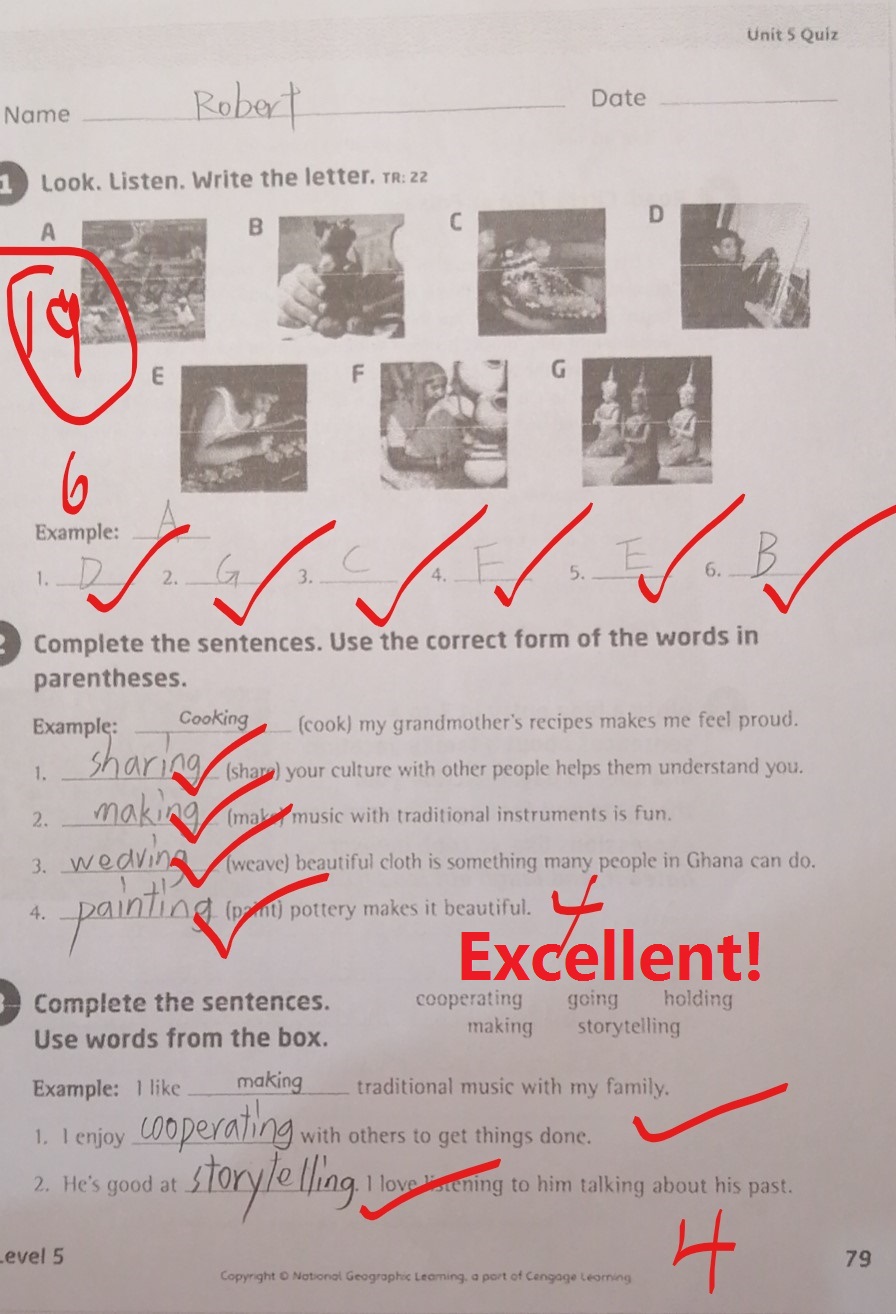 Unit 5 Quiz
Name Robert Date
1 Look. Listen. Write the letter. TR: 22
A B C D
19
E F G
6
Example: A
1. D 2. G 3. C 4. F 5. E 6. B
2 Complete the sentences. Use the correct form of the words in
parentheses.
Example: Cooking (cook) my grandmother's recipes makes me feel proud.
1. sharing (share) your culture with other people helps them understand you.
2. making (make) music with traditional instruments is fun.
3. weaving (weave) beautiful cloth is something many people in Ghana can do.
4. painting (paint) pottery makes it beautiful. 4
Excellent!
3 Complete the sentences. cooperating going holding
Use words from the box. making storytelling
Example: I like making traditional music with my family.
1. I enjoy cooperating with others to get things done.
2. He's good at storytelling. I love listening to him talking about his past.
4
Level 5 79
Copyright © National Geographic Learning, a part of Cengage Learning